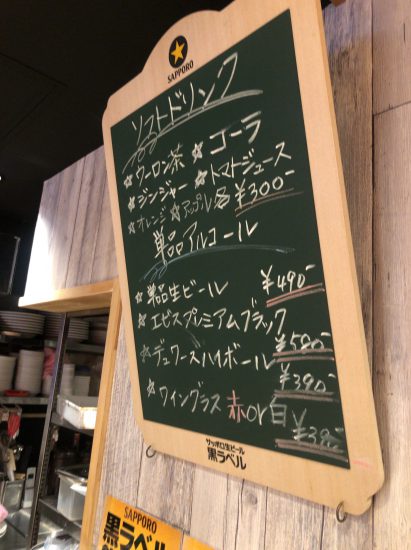 SAPPORO
ソフトドリンク
☆ウーロン茶 ☆コーラ
☆ジンジャー ☆トマトジュース
☆オレンジ ☆アップル 各¥300-
単品アルコール
☆単品生ビール ¥490-
☆エビスプレミアムブラック
¥580-
☆デュワースハイボール
¥390-
☆ワイングラス 赤or白
サッポロ生ビール
黒ラベル
SAPPORO
黒ラベル